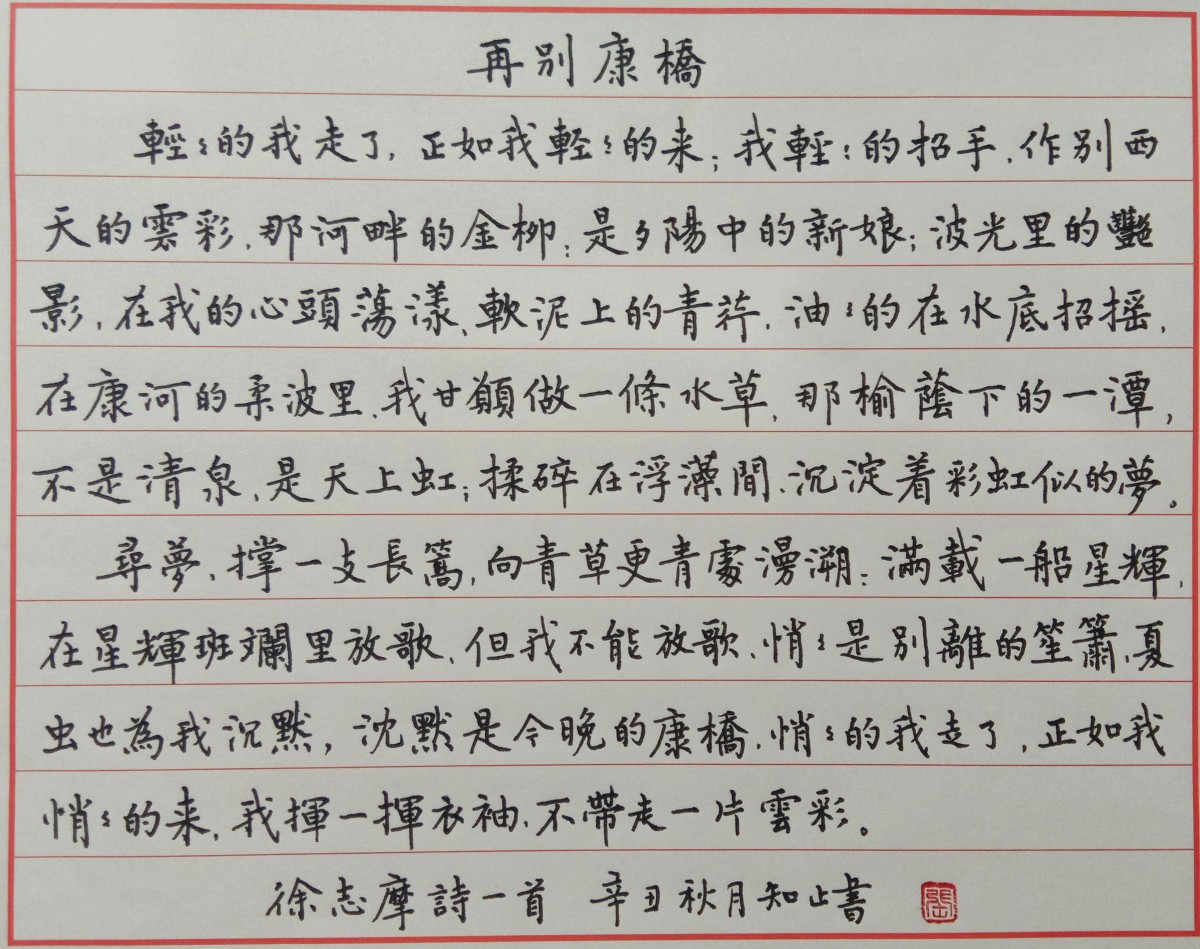 再别康橋
輕々的我走了，正如我輕々的来；我輕々的招手，作别西
天的雲彩，那河畔的金柳；是夕陽中的新娘；波光里的艷
影，在我的心頭蕩漾、軟泥上的青荇，油々的在水底招摇，
在康河的柔波里，我甘願做一條水草，那榆蔭下的一潭，
不是清泉，是天上虹；揉碎在浮藻間、沉淀着彩虹似的夢。
尋夢，撑一支長篙，向青草更青處漫溯；滿載一船星輝，
在星輝斑斕里放歌，但我不能放歌、悄々是别離的笙簫，夏
虫也為我沉默，沈默是今晚的康橋，悄々的我走了，正如我
悄々的来，我揮一揮衣袖、不帶走一片雲彩。
徐志摩詩一首 辛丑秋月知止書 張